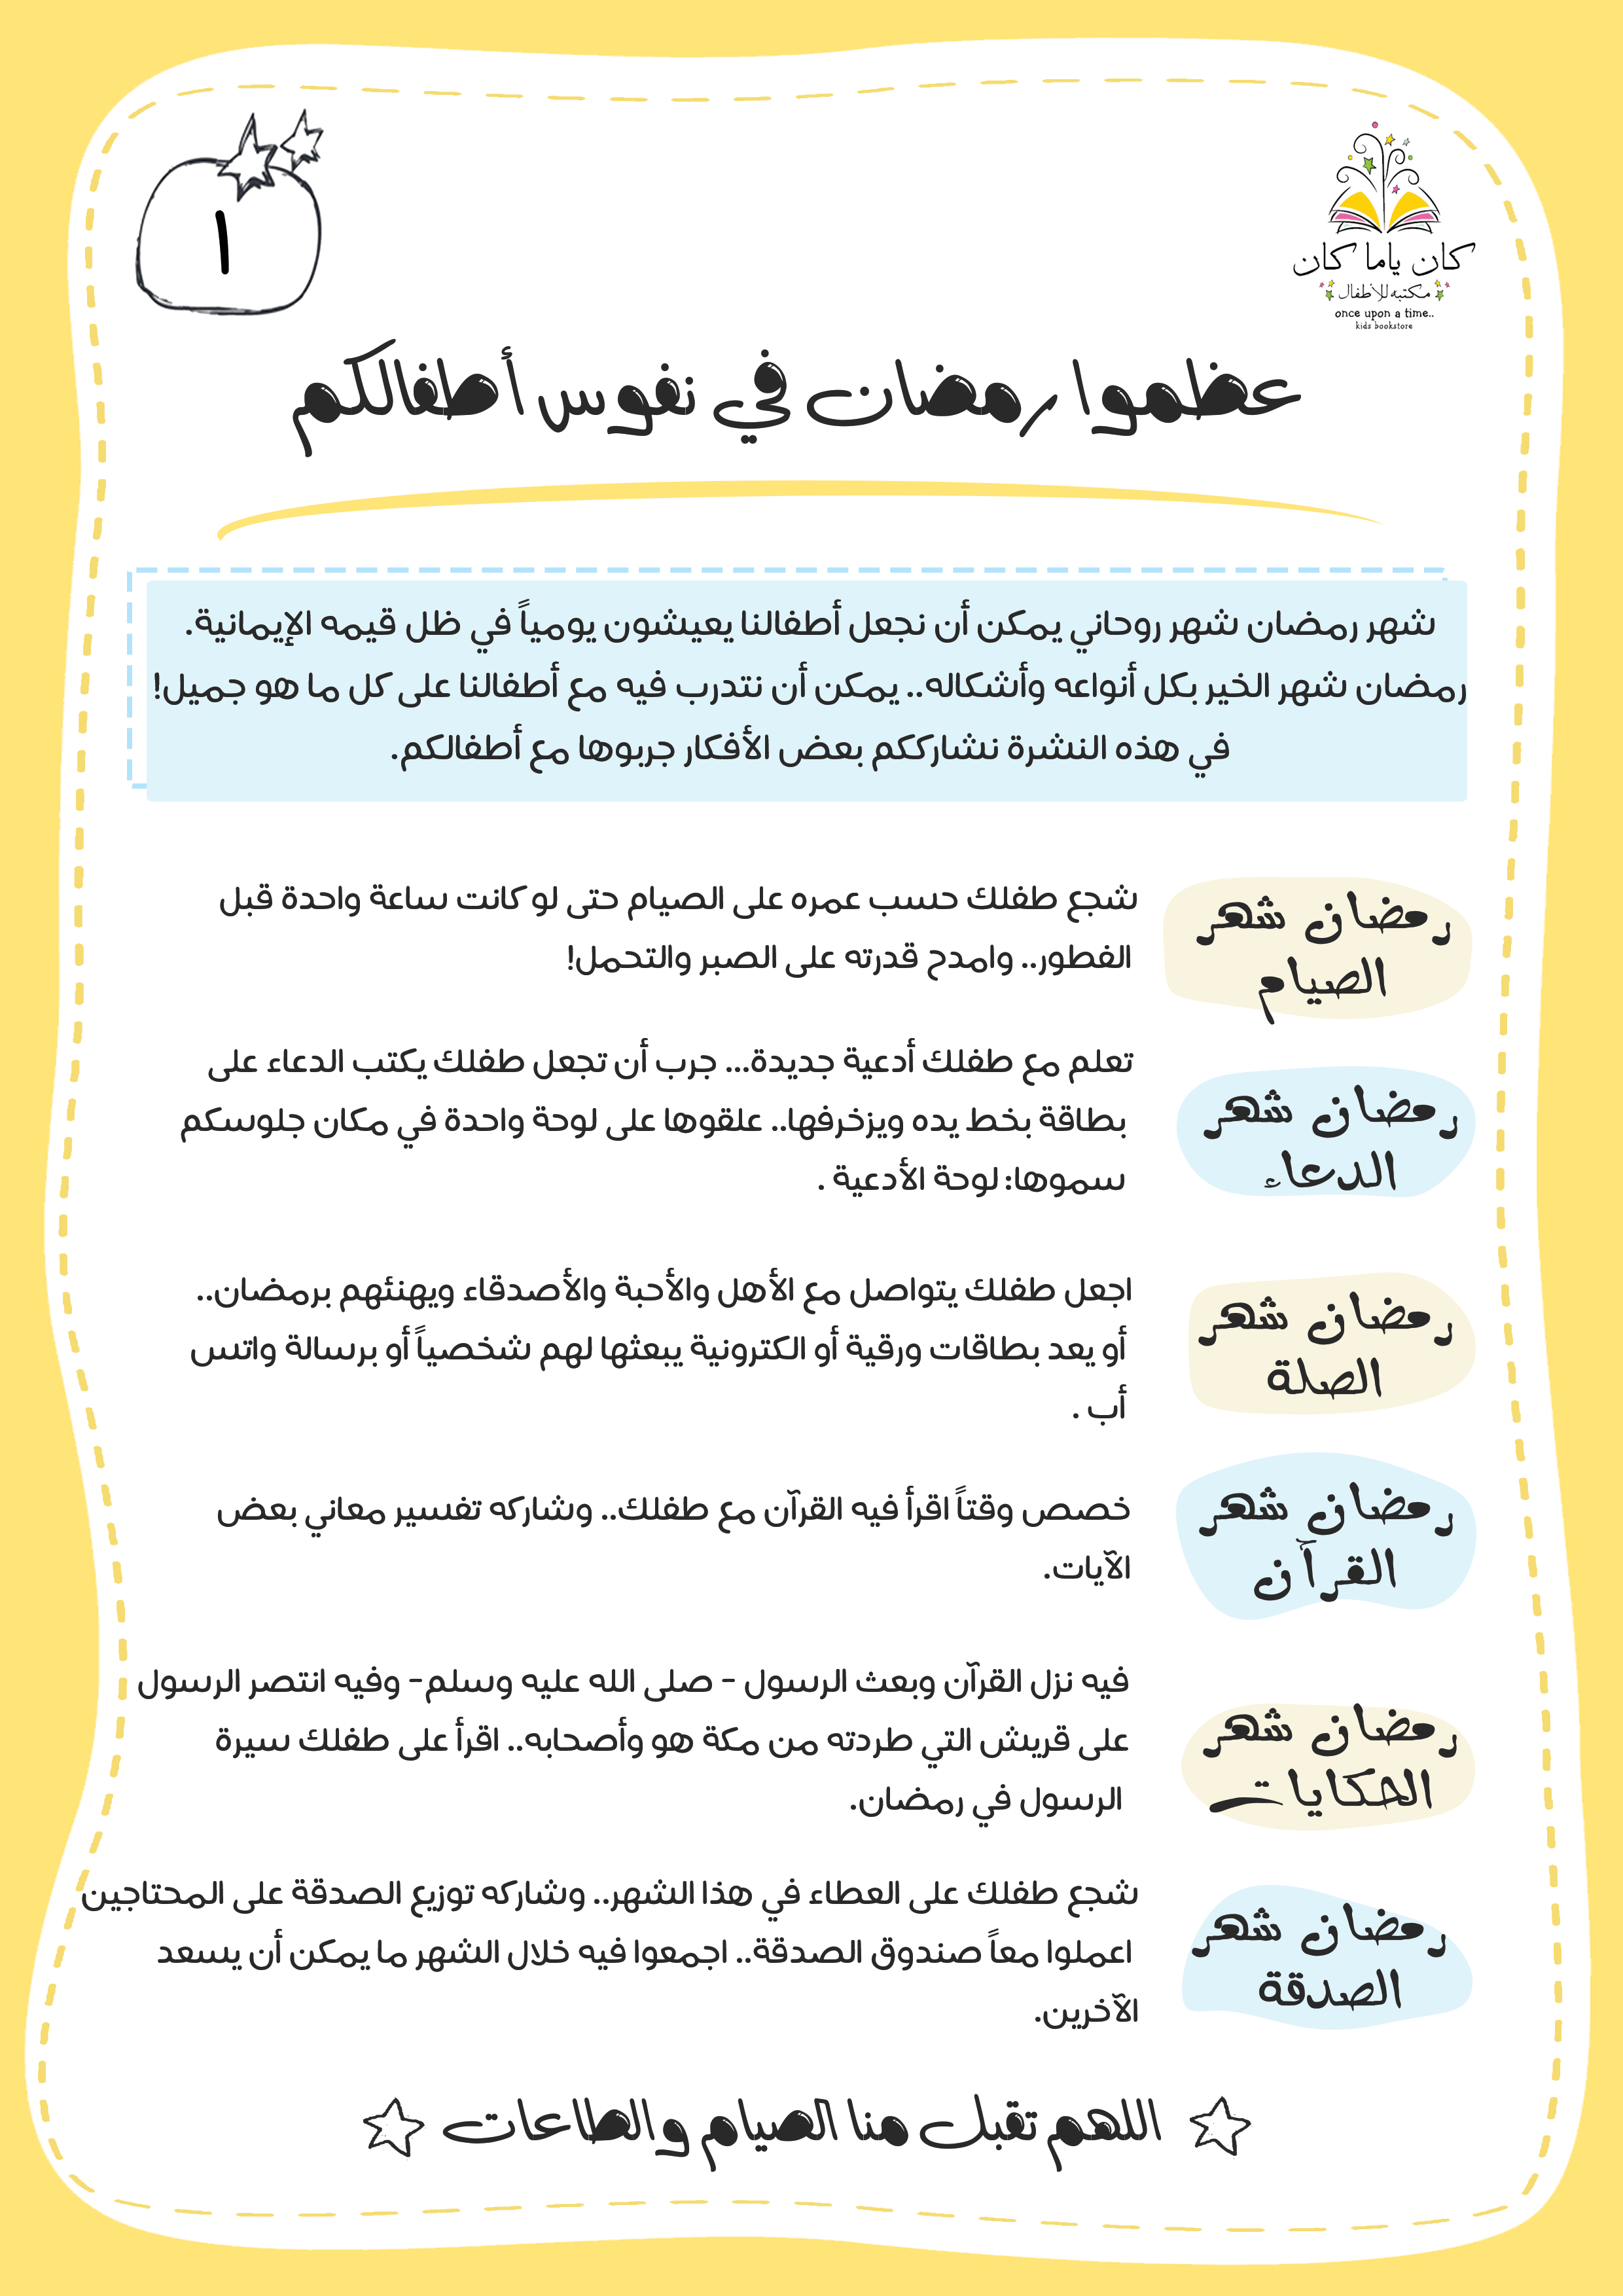 ١
كان ياما كان
مكتبه للأطفال
once upon a time..
kids bookstore
عظموا رمضان في نفوس أطفالكم
شهر رمضان شهر روحاني يمكن أن نجعل أطفالنا يعيشون يومياً في ظل قيمه الإيمانية.
رمضان شهر الخير بكل أنواعه وأشكاله.. يمكن أن نتدرب فيه مع أطفالنا على كل ما هو جميل!
في هذه النشرة نشارككم بعض الأفكار جربوها مع أطفالكم.
رمضان شهر
الصيام
شجع طفلك حسب عمره على الصيام حتى لو كانت ساعة واحدة قبل
الفطور.. وامدح قدرته على الصبر والتحمل!
رمضان شهر
الدعاء
تعلم مع طفلك أدعية جديدة... جرب أن تجعل طفلك يكتب الدعاء على
بطاقة بخط يده ويزخرفها.. علقوها على لوحة واحدة في مكان جلوسكم
سموها: لوحة الأدعية .
رمضان شهر
الصلة
اجعل طفلك يتواصل مع الأهل والأحبة والأصدقاء ويهنئهم برمضان..
أو يعد بطاقات ورقية أو الكترونية يبعثها لهم شخصياً أو برسالة واتس
أب .
رمضان شهر
القرآن
خصص وقتاً اقرأ فيه القرآن مع طفلك.. وشاركه تفسير معاني بعض
الآيات.
رمضان شهر
الحكايات
فيه نزل القرآن وبعث الرسول - صلى الله عليه وسلم- وفيه انتصر الرسول
على قريش التي طردته من مكة هو وأصحابه.. اقرأ على طفلك سيرة
الرسول في رمضان.
رمضان شهر
الصدقة
شجع طفلك على العطاء في هذا الشهر.. وشاركه توزيع الصدقة على المحتاجين
اعملوا معاً صندوق الصدقة.. اجمعوا فيه خلال الشهر ما يمكن أن يسعد
الآخرين.
اللهم تقبل منا الصيام والطاعات